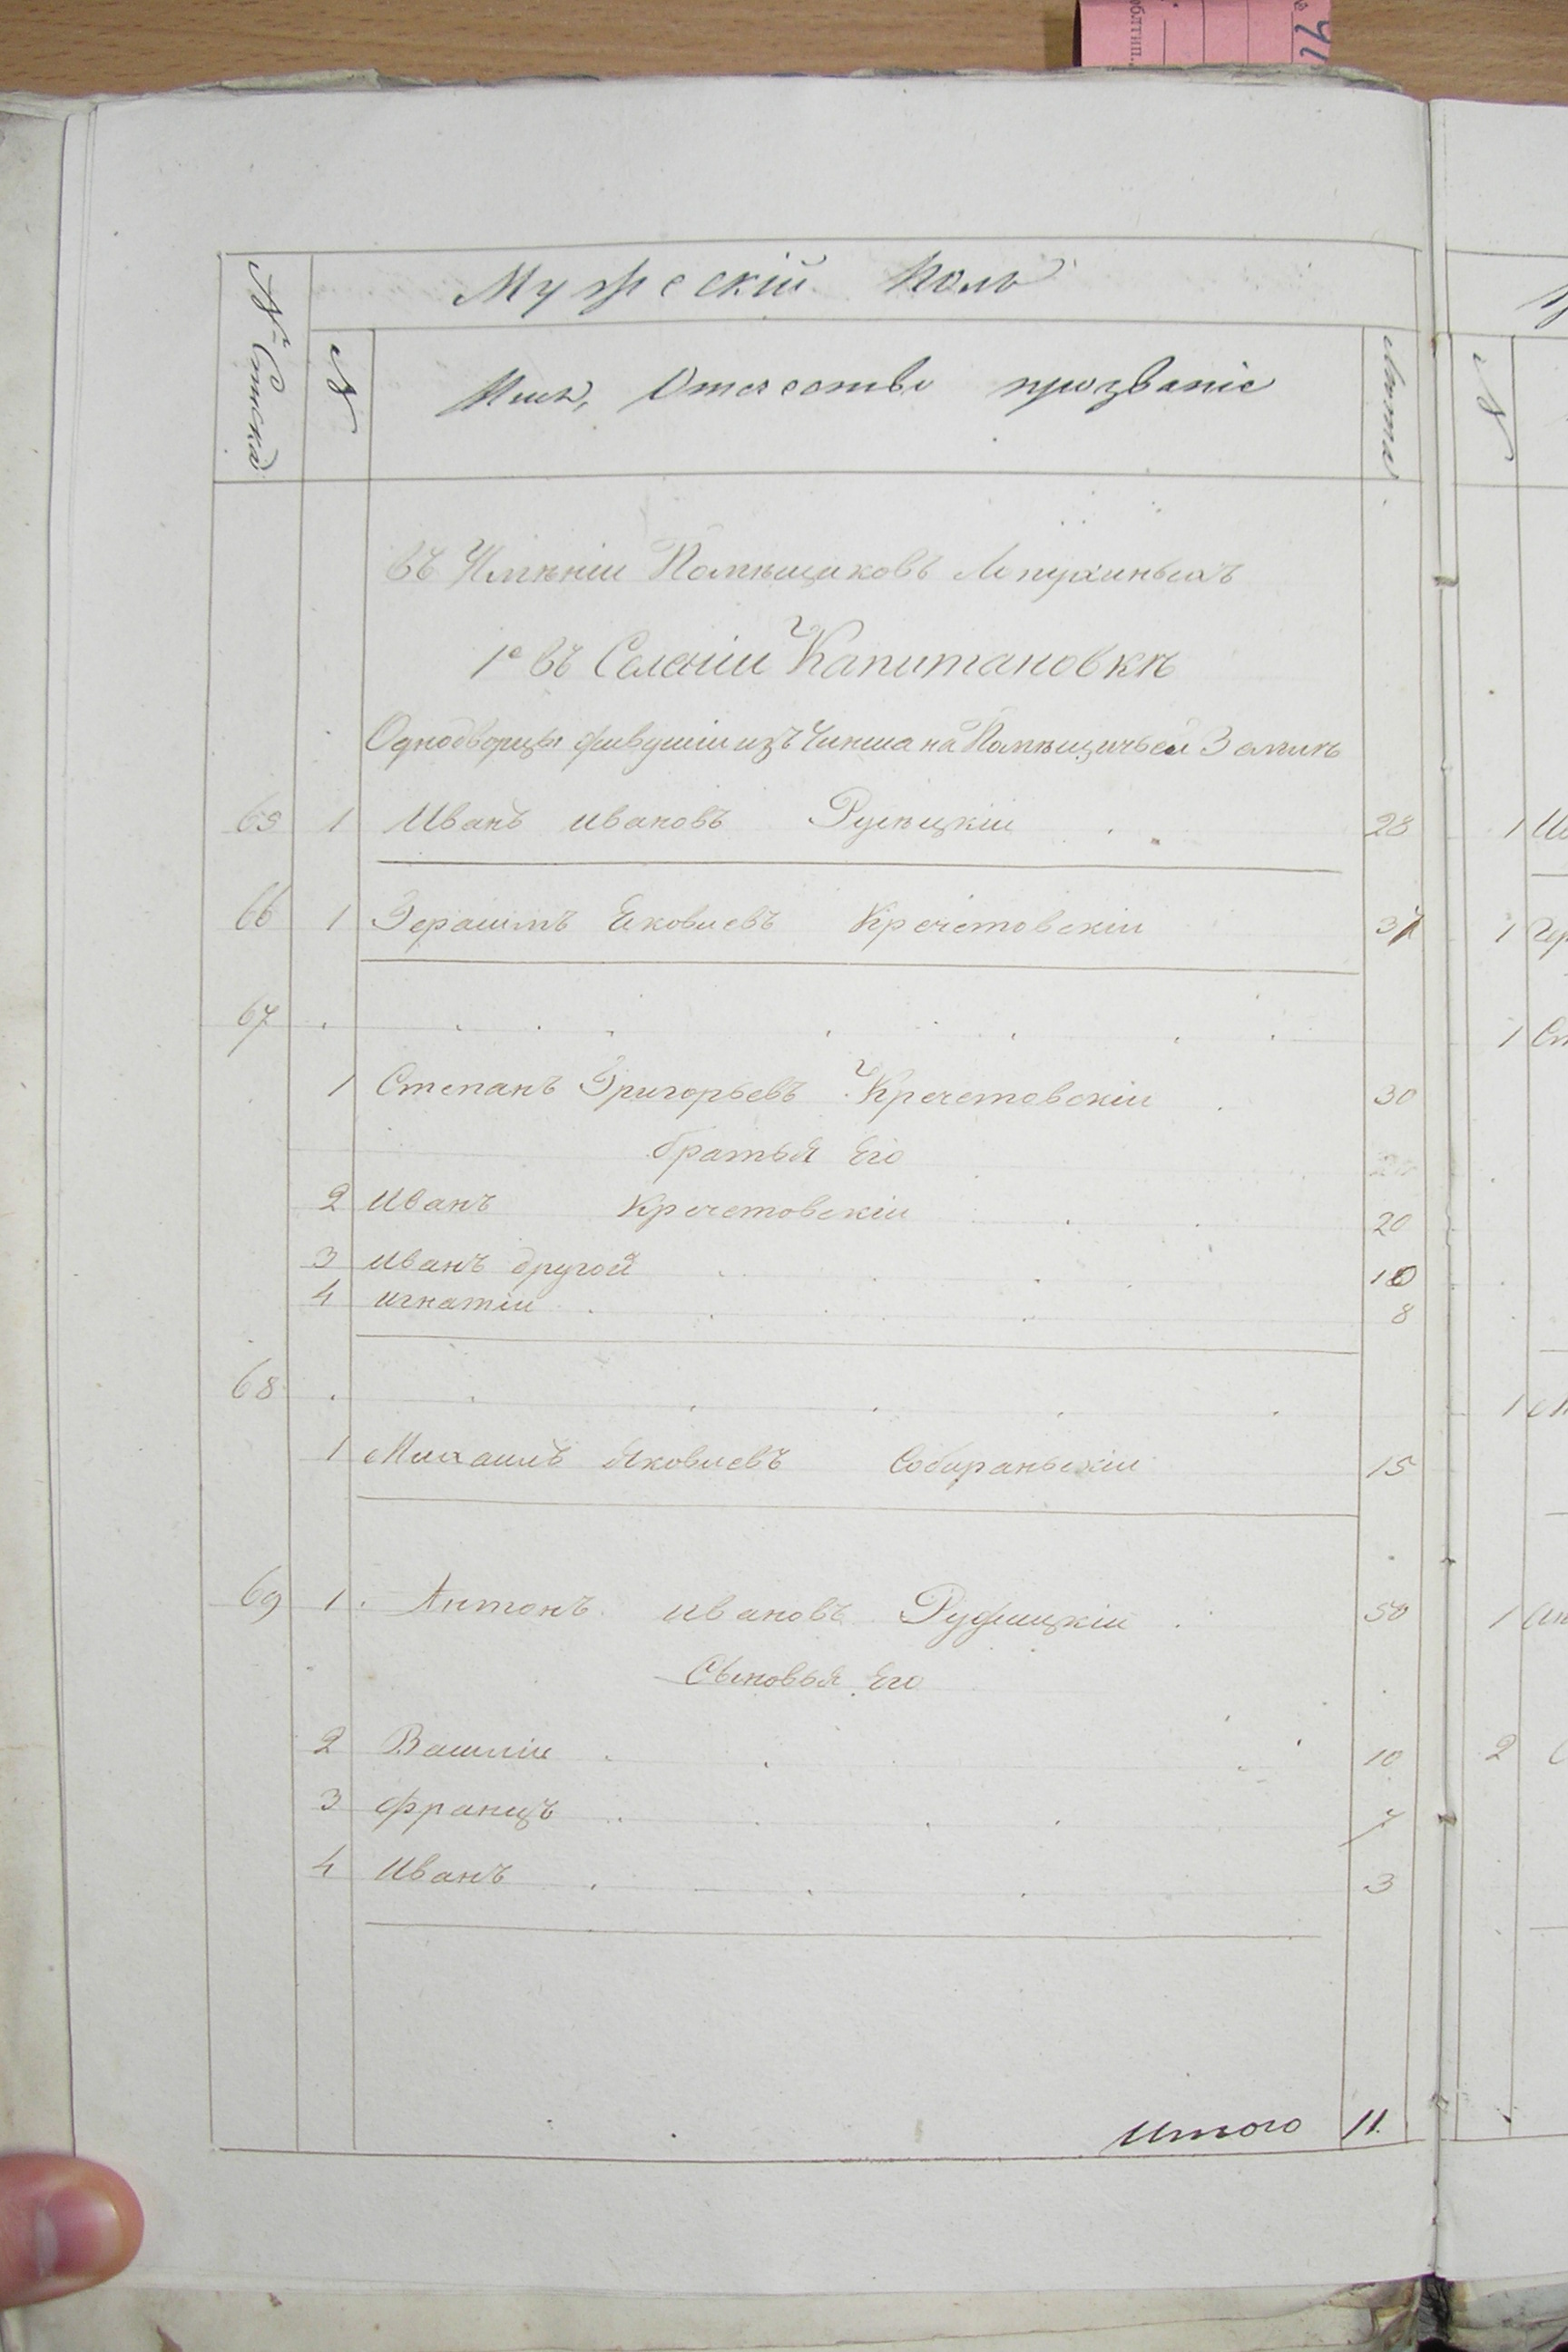 Мужескій полъ
№ Списка
№
Имя, Отечество прозваніе
Лѣта
въ Имѣніи Помѣщиковъ Лопухиныхъ
1е въ Селеніи Капитановкѣ
Однодворцы живущіи изъ Чинша на Помѣщичьей Землѣ
65 1 Иванъ ивановъ 28
66 1 Герасимъ Яковлевъ Кречетовскіи 31
67
1 Степанъ Григорьевъ Кречетовскіи 30
братья Его
2 Иванъ Кречетовскіи 20
3 Иванъ другой 10
4 игнатіи 8
68
1 Михаилъ Яковлевъ Собираньскіи 15
69 1 Антонъ ивановъ Ружицкіи 50
Сыновья Его
2 Василіи 10
3 францъ 7
4 Иванъ 3
Итого 11.